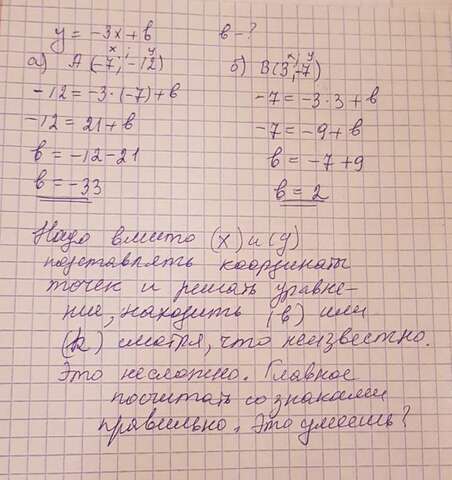 y = -3x + в   в - ?
а) A (-7; -12)   б) B(3; -7)
x y   x y
-12 = -3·(-7) + в   -7 = -3·3 + в
-12 = 21 + в   -7 = -9 + в
в = -12 - 21   в = -7 + 9
в = -33   в = 2
Надо вместо (x) и (y)
подставлять координаты
точек и решать уравне-
ние, находить (в) или
(k) смотря, что неизвестно.
Это несложно. Главное
посчитать со знаками
правильно. Это умеешь?